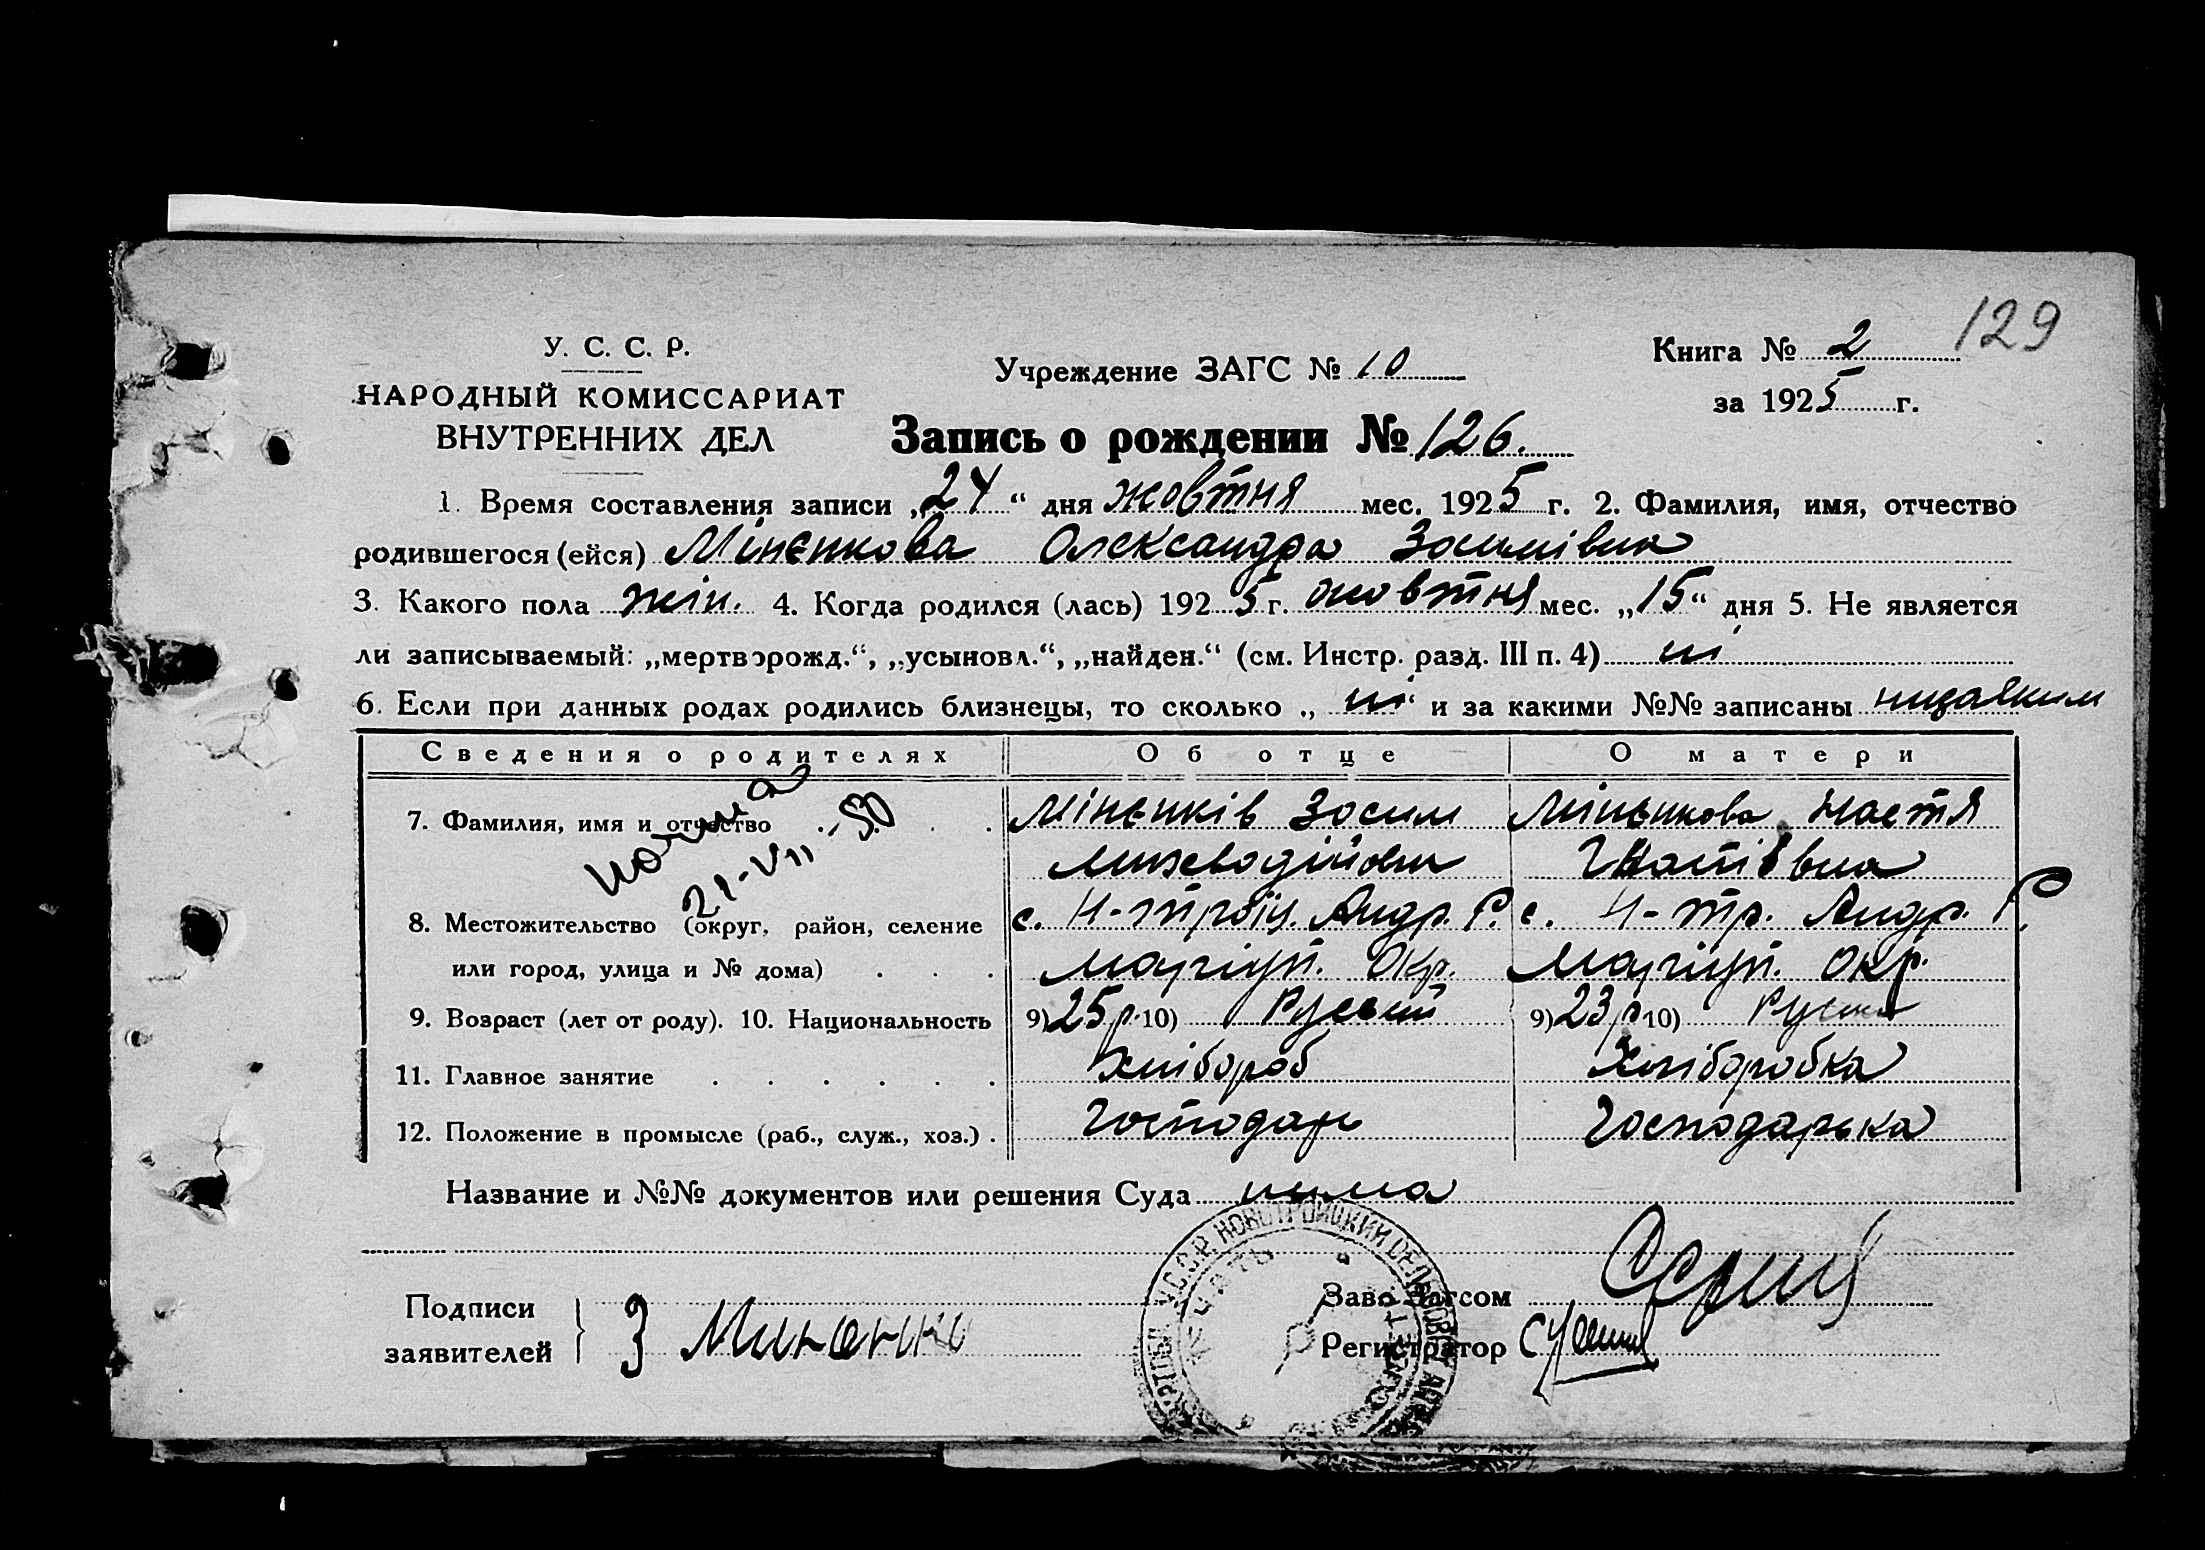 129
У. С. С. Р.
НАРОДНЫЙ КОМИССАРИАТ
ВНУТРЕННИХ ДЕЛ
Учреждение ЗАГС № 10
Книга № 2
за 1925 г.
Запись о рождении № 126.
1. Время составления записи „24“ дня жовтня мес. 1925 г. 2. Фамилия, имя, отчество
родившегося (ейся) Міненкова Олександра Зосимівна
3. Какого пола жін. 4. Когда родился (лась) 1925 г. жовтня мес. „15“ дня 5. Не является
ли записываемый: „мертворожд.“, „усыновл.“, „найден.“ (см. Инстр. разд. III п. 4) ні
6. Если при данных родах родились близнецы, то сколько „ні“ и за какими №№ записаны
Сведения о родителях Об отце О матери
7. Фамилия, имя и отчество Міненків Зосим Міненкова Настя
Гнатівна
21-VII-50
8. Местожительство (округ, район, селение с. Н-троїц. Андр. Р. с. Н-тр. Андр. Р.
или город, улица и № дома) Маріуп. Окр. Маріуп. Окр.
9. Возраст (лет от роду). 10. Национальность 9) 25 р. 10) Руський 9) 23 р. 10)
11. Главное занятие Хлібороб Хліборобка
12. Положение в промысле (раб., служ., хоз.) Господарь Господарька
Название и №№ документов или решения Суда нима
У.С.С.Р. НОВОТРОИЦКИЙ
Подписи
заявителей } З Миненко
Зав. Загсом
Регистратор